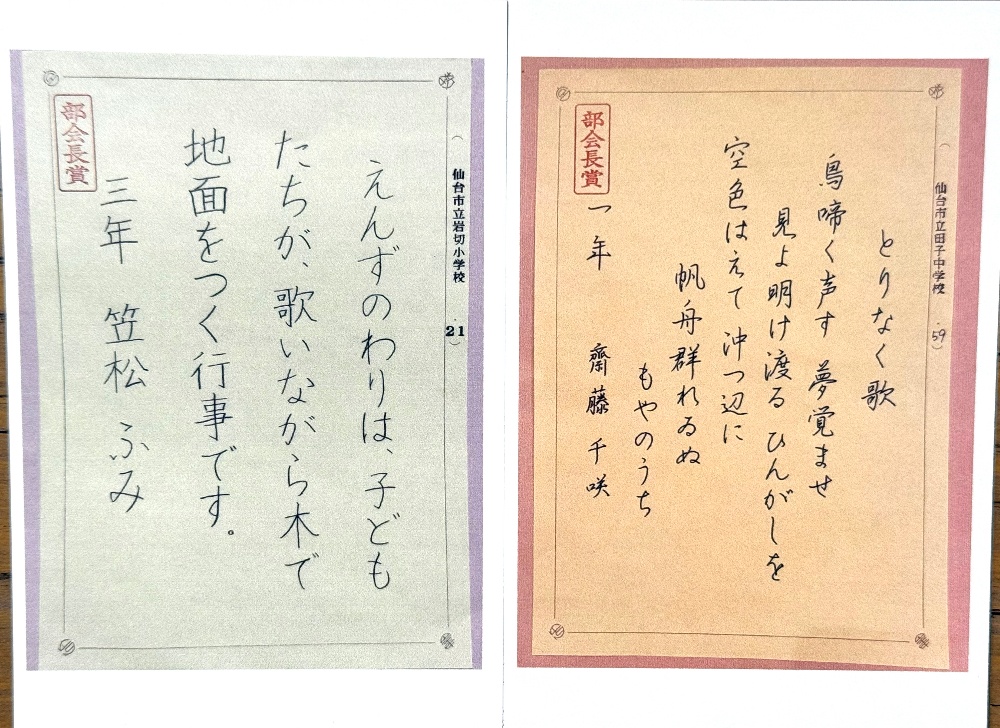 （仙台市立岩切小学校・21）
えんずのわりは、子ども
たちが、歌いながら木で
地面をつく行事です。
三年 笠松 ふみ
部会長賞
（仙台市立田子中学校・59）
とりなく歌
鳥啼く声す 夢覚ませ
見よ明け渡る ひんがしを
空色はえて 沖つ辺に
帆舟群れゐぬ
もやのうち
一年 齋藤 千咲
部会長賞